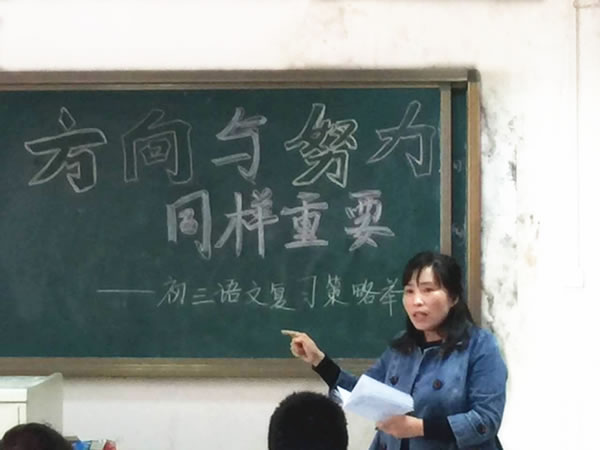 方向与努力
同样重要
——初三语文复习策略举